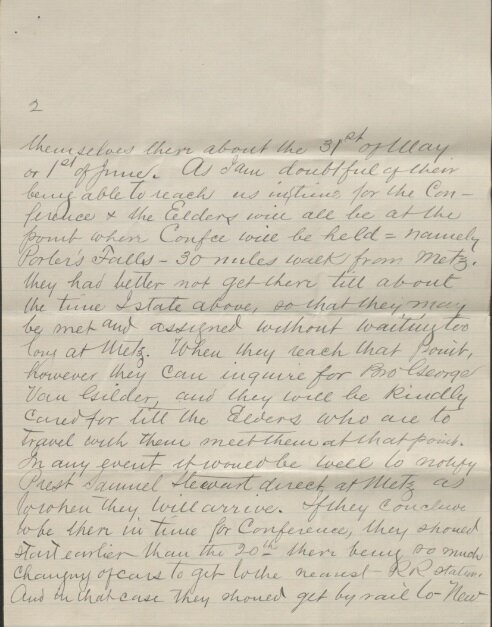 2
themselves there about the 31st of May
or 1st of June. As I am doubtful of their
being able to reach us in time for the Con-
ference & the Elders will all be at the
point where Confce will be held = namely
Porter's Falls - 30 miles walk from Metz.
they had better not get there till about
the time I state above, so that they may
be met and assigned without waiting too
long at Metz. When they reach that Point,
however they can inquire for Bro George
Van Gilder, and they will be kindly
cared for till the Elders who are to
travel with them meet them at that point.
In any event it would be well to notify
Prest Samuel Stewart direct at Metz as
to when they will arrive. If they conclude
to be there in time for Conference, they should
start earlier than the 20th there being so much
changing of cars to get to the nearest - RR station.
And in that case they should get by rail to New